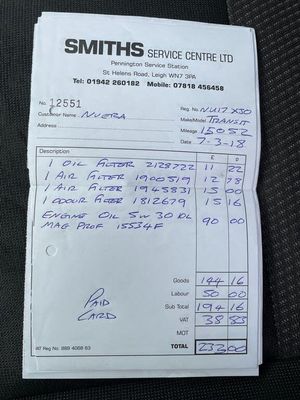 SMITHS SERVICE CENTRE LTD
Pennington Service Station
St Helens Road, Leigh WN7 3PA
Tel: 01942 260182 Mobile: 07818 456458
No. 12551
Reg. No. NU17 XJO
Customer Name: NUERA
Make/Model TRANSIT
Address
Mileage 15052
Date 7-3-18
Description £ P
1 OIL FILTER 2128722 11 22
1 AIR FILTER 1900519 12 78
1 AIR FILTER 1945831 15 00
1 ODOUR FILTER 1812679 15 16
ENGINE OIL 5W30 10L 90 00
MAG PROF 15534F
Goods 144 16
PAID
CARD
Labour 50 00
Sub Total 194 16
VAT 38 83
MOT
TOTAL 232.00
AT Reg No: 889 4068 83